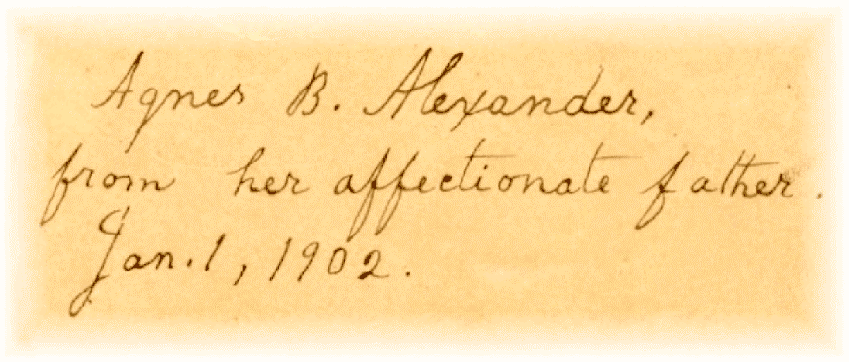 Agnes B. Alexander,
from her affectionate father.
Jan. 1, 1902.